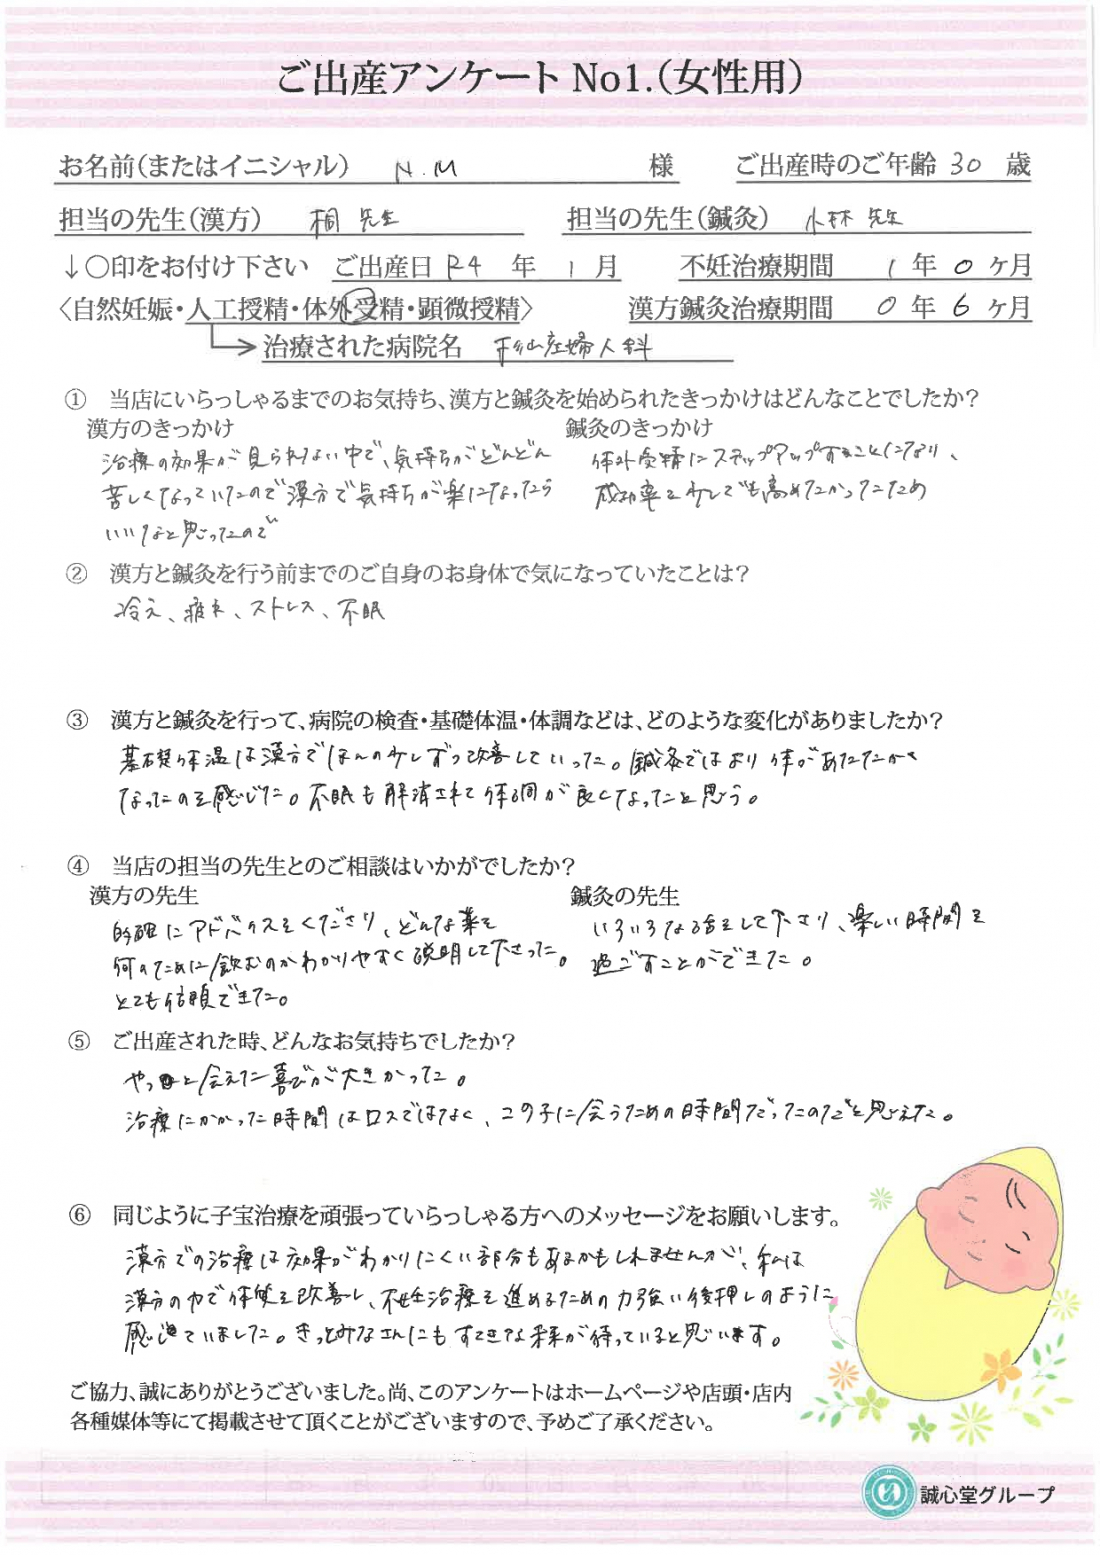 ご出産アンケート No1.(女性用)
お名前(またはイニシャル) N.M 様 ご出産時のご年齢 30 歳
担当の先生(漢方) 桐 先生 担当の先生(鍼灸) 小林 先生
↓○印をお付け下さい ご出産日 R4 年 1 月 不妊治療期間 1 年 0 ヶ月
〈自然妊娠・人工授精・体外受精・顕微授精〉 漢方鍼灸治療期間 0 年 6 ヶ月
治療された病院名 産婦人科
① 当店にいらっしゃるまでのお気持ち、漢方と鍼灸を始められたきっかけはどんなことでしたか?
漢方のきっかけ
治療の効果が見られない中で、気持ちがどんどん
苦しくなっていたので漢方で気持ちが楽になったら
いいなと思ったので
鍼灸のきっかけ
体外受精にステップアップすることになり、
成功率を少しでも高めたかったため
② 漢方と鍼灸を行う前までのご自身のお身体で気になっていたことは?
冷え、疲れ、ストレス、不眠
③ 漢方と鍼灸を行って、病院の検査・基礎体温・体調などは、どのような変化がありましたか?
基礎体温は漢方でほんの少しずつ改善していった。鍼灸ではより体があたたかく
なったのを感じた。不眠も解消されて体調が良くなったと思う。
④ 当店の担当の先生とのご相談はいかがでしたか?
漢方の先生
的確にアドバイスをくださり、どんな薬を
何のために飲むのかわかりやすく説明して下さった。
とても信頼できた。
鍼灸の先生
いろいろな話をして下さり、楽しい時間を
過ごすことができた。
⑤ ご出産された時、どんなお気持ちでしたか?
やっと会えた喜びが大きかった。
治療にかかった時間はロスではなく、この子に会うための時間だったのだと思えた。
⑥ 同じように子宝治療を頑張っていらっしゃる方へのメッセージをお願いします。
漢方での治療は効果がわかりにくい部分もあるかもしれませんが、私は
漢方の力で体質を改善し、不妊治療を進めるための力強い後押しのように
感じていました。きっとみなさんにもすてきな未来が待っていると思います。
ご協力、誠にありがとうございました。尚、このアンケートはホームページや店頭・店内
各種媒体等にて掲載させて頂くことがございますので、予めご了承ください。
誠心堂グループ